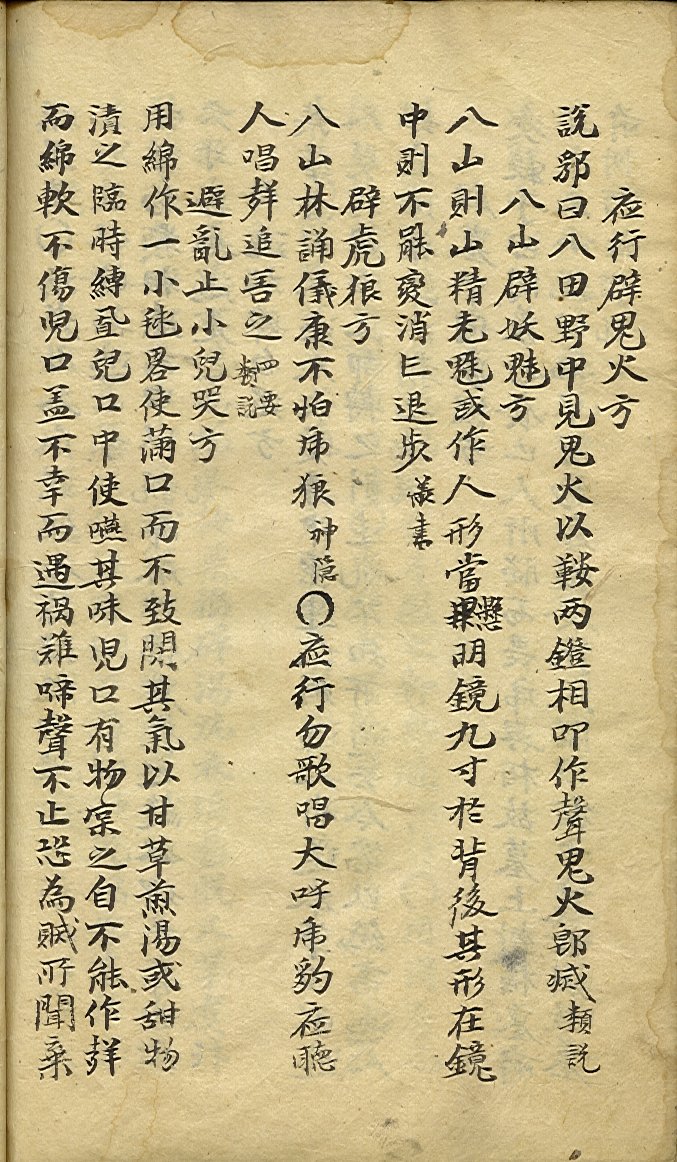 夜行辟鬼火方
說郛曰入田野中見鬼火以鞍兩鐙相叩作聲鬼火卽滅 類說
入山辟妖魅方
入山則山精老魅或作人形當懸明鏡九寸於背後其形在鏡
中則不能變消亡退步
辟虎狼方
入山林誦儀康不怕虎狼 神隱 〇夜行勿歌唱大呼虎豹夜聽
人唱聲追害之 四要類說
避亂止小兒哭方
用綿作一小毬畧使滿口而不致閉其氣以甘草煎湯或甜物
漬之臨時縛置兒口中使嚥其味児口有物実之自不能作聲
而綿軟不傷児口盖不幸而遇禍難啼聲不止恐為賊所聞棄